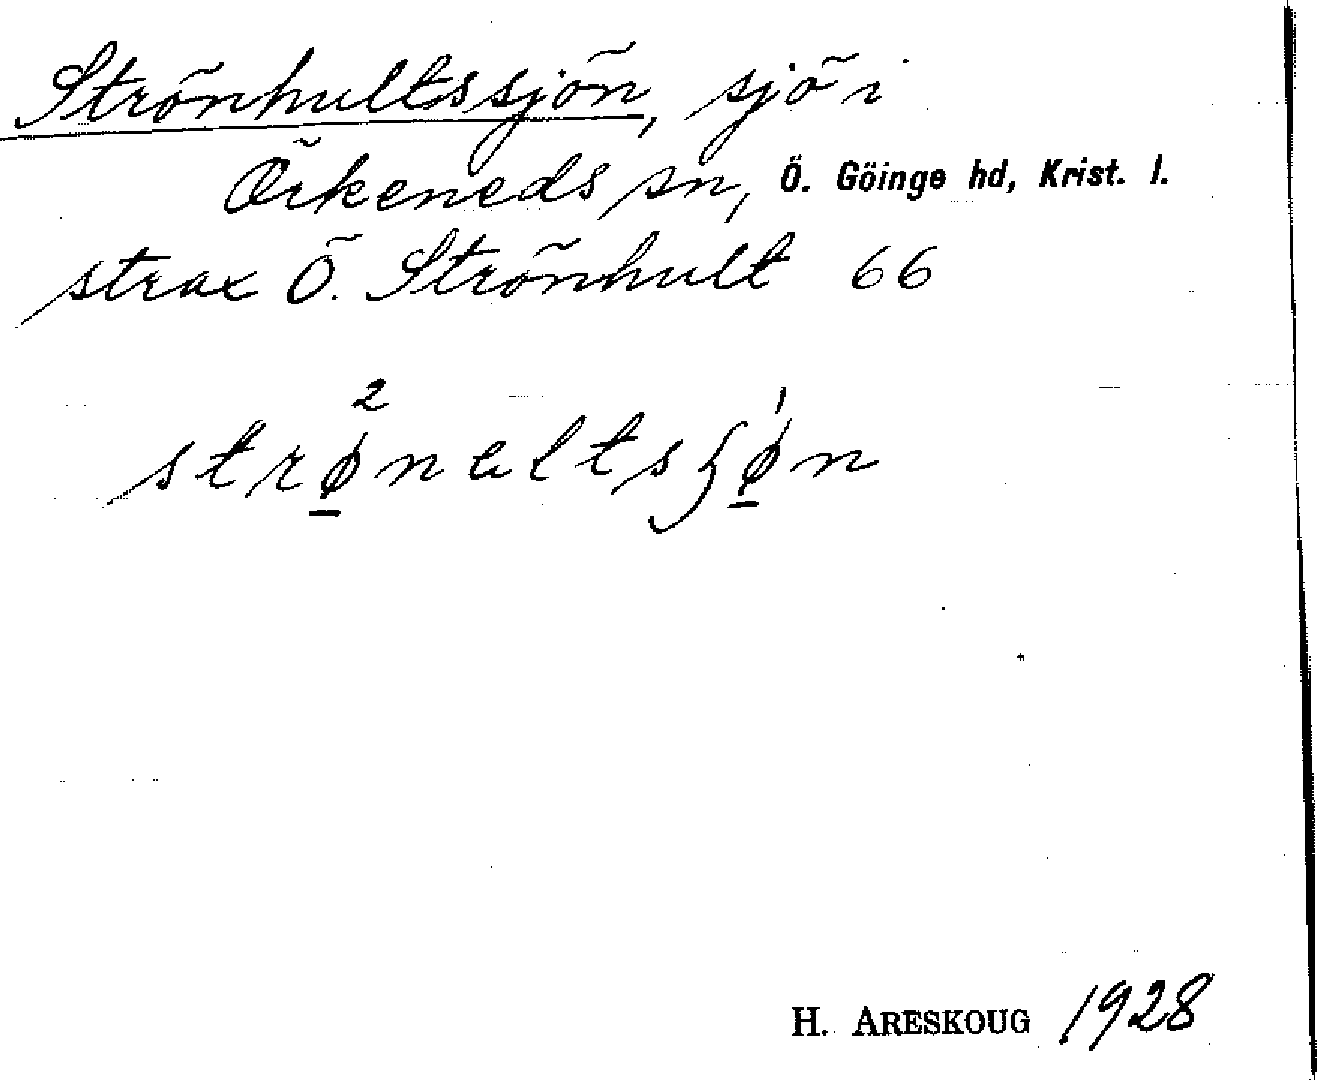 Strönhultssjön, sjö i
Örkeneds sn, Ö. Göinge hd, Krist. l.
strax Ö. Strönhult 66
strø²nəltsʃø¹n
H. ARESKOUG 1928